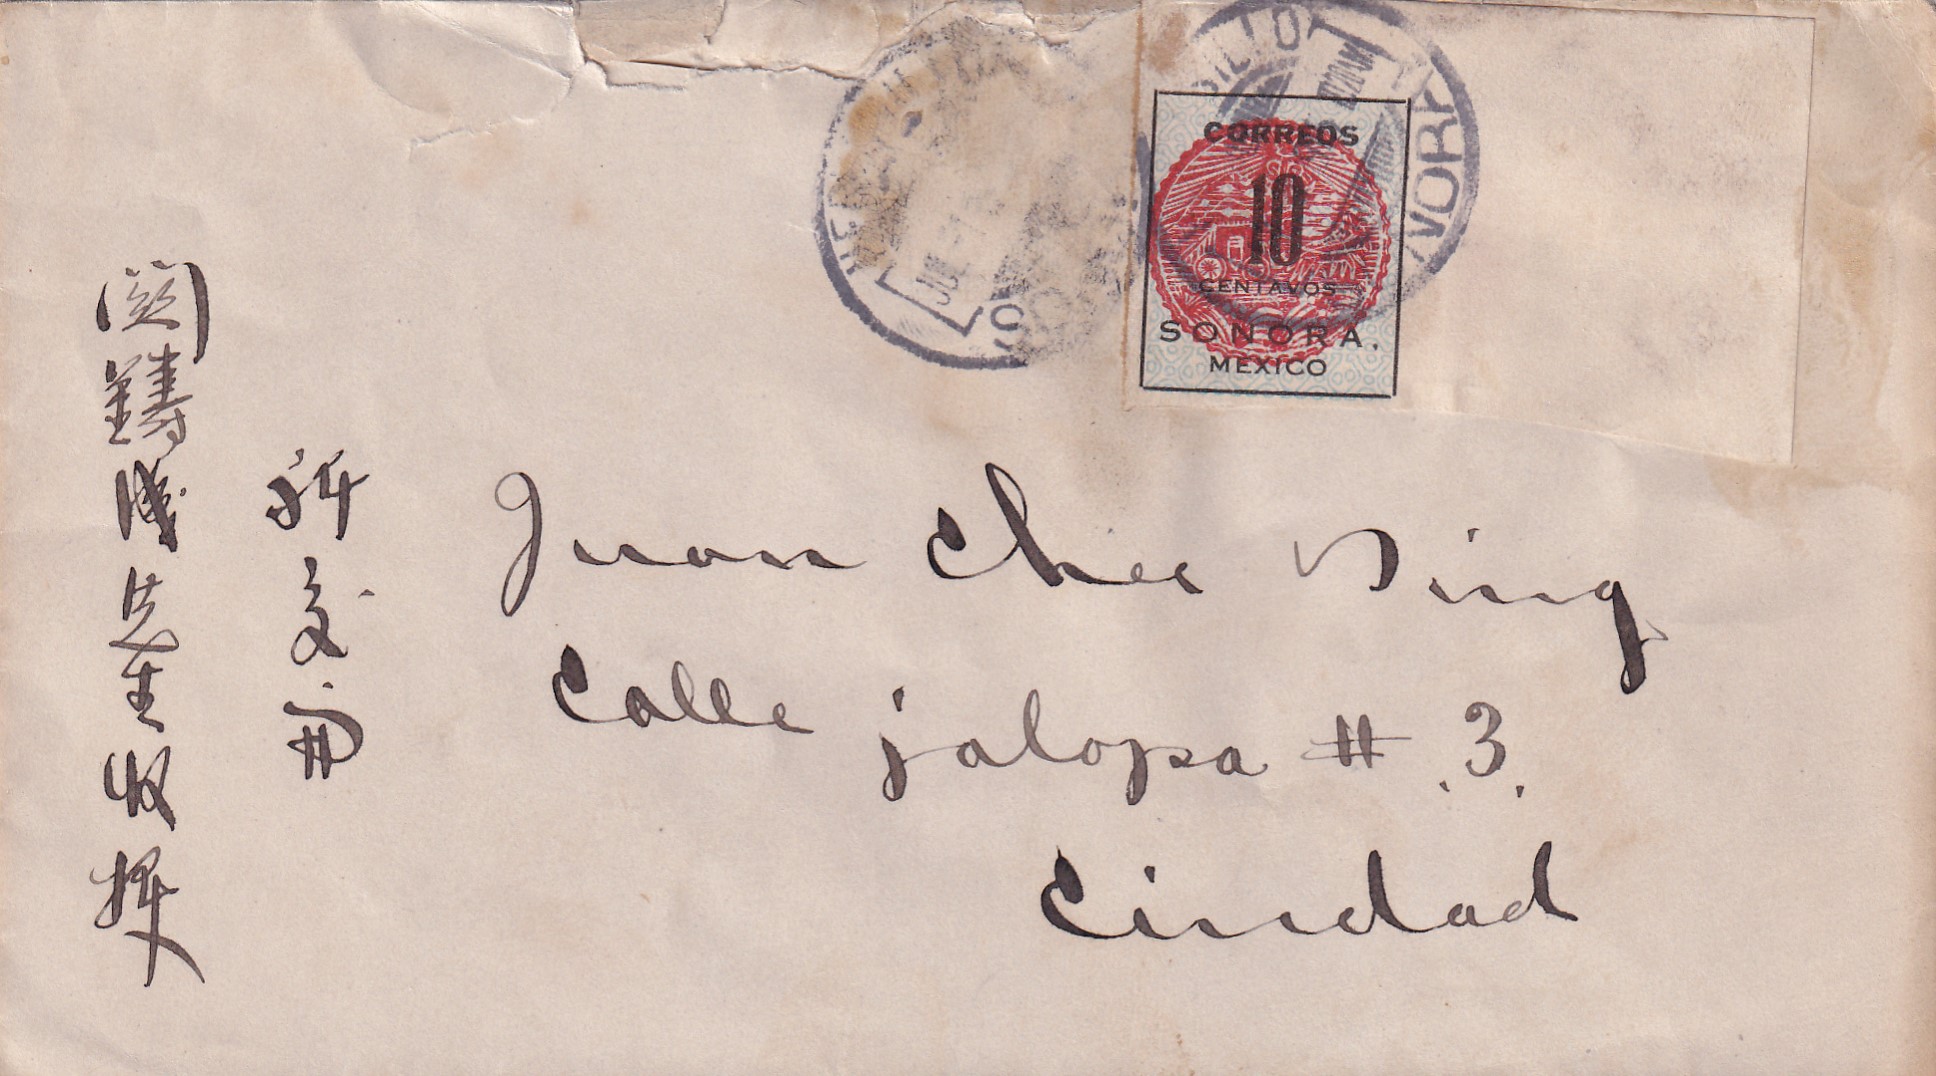 CORREOS
10
CENTAVOS
SONORA.
MEXICO
JUL
関鑄成先生收
祈交
Juan Chee
Calle jalapa # 3.
Ciudad